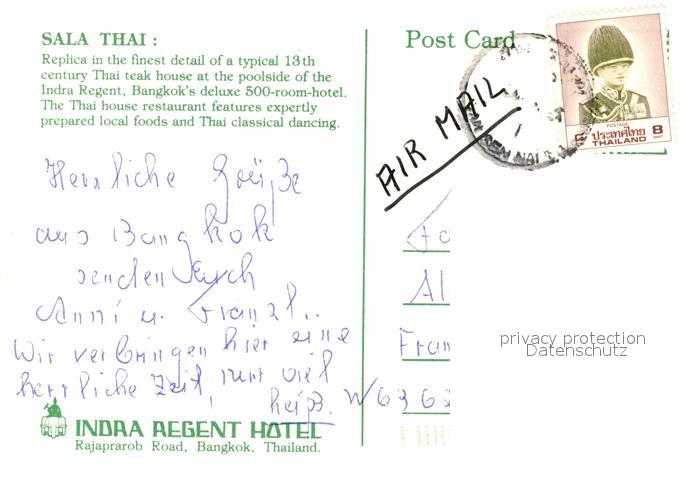 SALA THAI :
Replica in the finest detail of a typical 13th
century Thai teak house at the poolside of the
Indra Regent, Bangkok's deluxe 500-room-hotel.
The Thai house restaurant features expertly
prepared local foods and Thai classical dancing.
Post Card
AIR MAIL
POSTAGE
ประเทศไทย 8
THAILAND
Herrliche Grüße
aus Bangkok
senden Euch
Anni u. Franzl..
Wir verbringen hier eine
herrliche Zeit, nur viel
heiß.
Al
Fran
W 63 63
privacy protection
Datenschutz
INDRA REGENT HOTEL
Rajaprarob Road, Bangkok, Thailand.